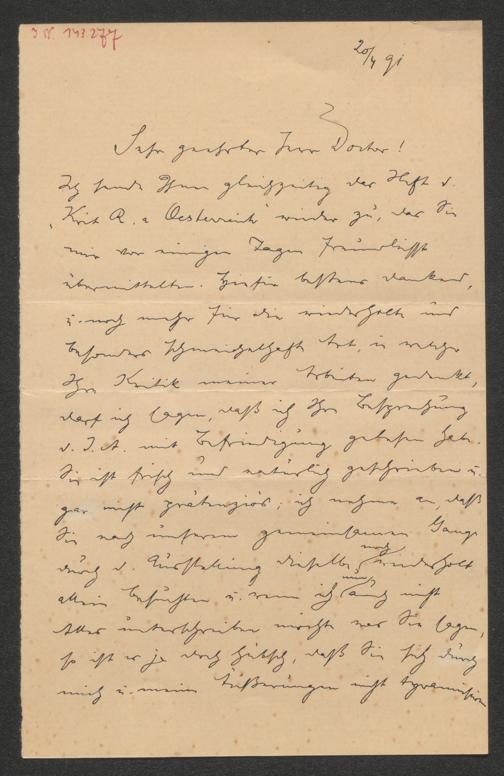 I.N. 143.277
20/4 91
Sehr geehrter Herr Doctor!
Ich sende Ihnen gleichzeitig das Heft d.
„Krit R. a Oesterreich“ wieder zu, das Sie
mir vor einigen Tagen freundlichst
übermittelten. Hiefür bestens dankend,
u. noch mehr für die wiederholte und
besonders schmeichelhafte Art, in welcher
Ihre Kritik meiner Arbeiten gedenkt,
darf ich sagen, daß ich Ihre Besprechung
d. J.A. mit Befriedigung gelesen habe.
Sie ist frisch und natürlich geschrieben u.
gar nicht prätenziös, ich nehme an, daß
Sie nach unserem gemeinsamen Gange
durch d. Ausstellung dieselbe noch wiederholt
allein besuchten u. wenn ich nun auch nicht
Alles unterschreiben möchte was Sie sagen,
so ist es ja doch hübsch, daß Sie sich durch
mich u. meine Äußerungen nicht tyrannisiren